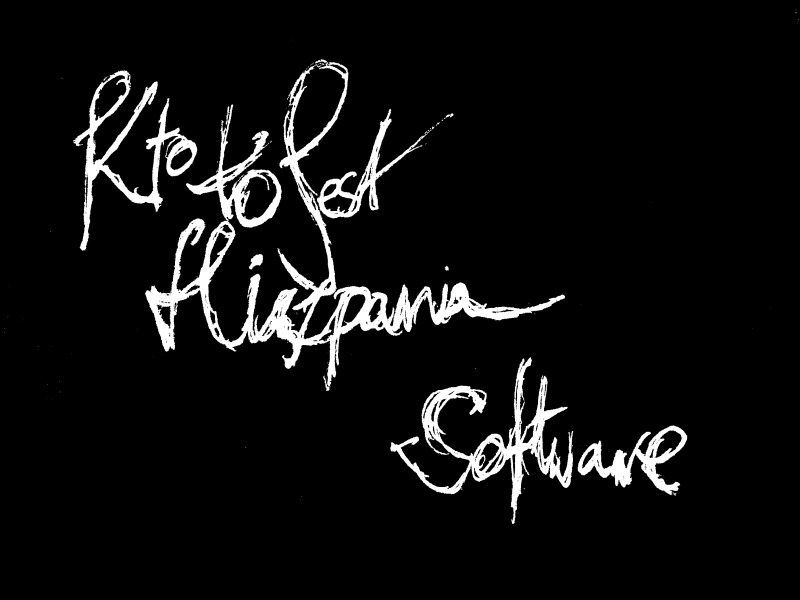 Kto to Jest
Hiszpania
Software